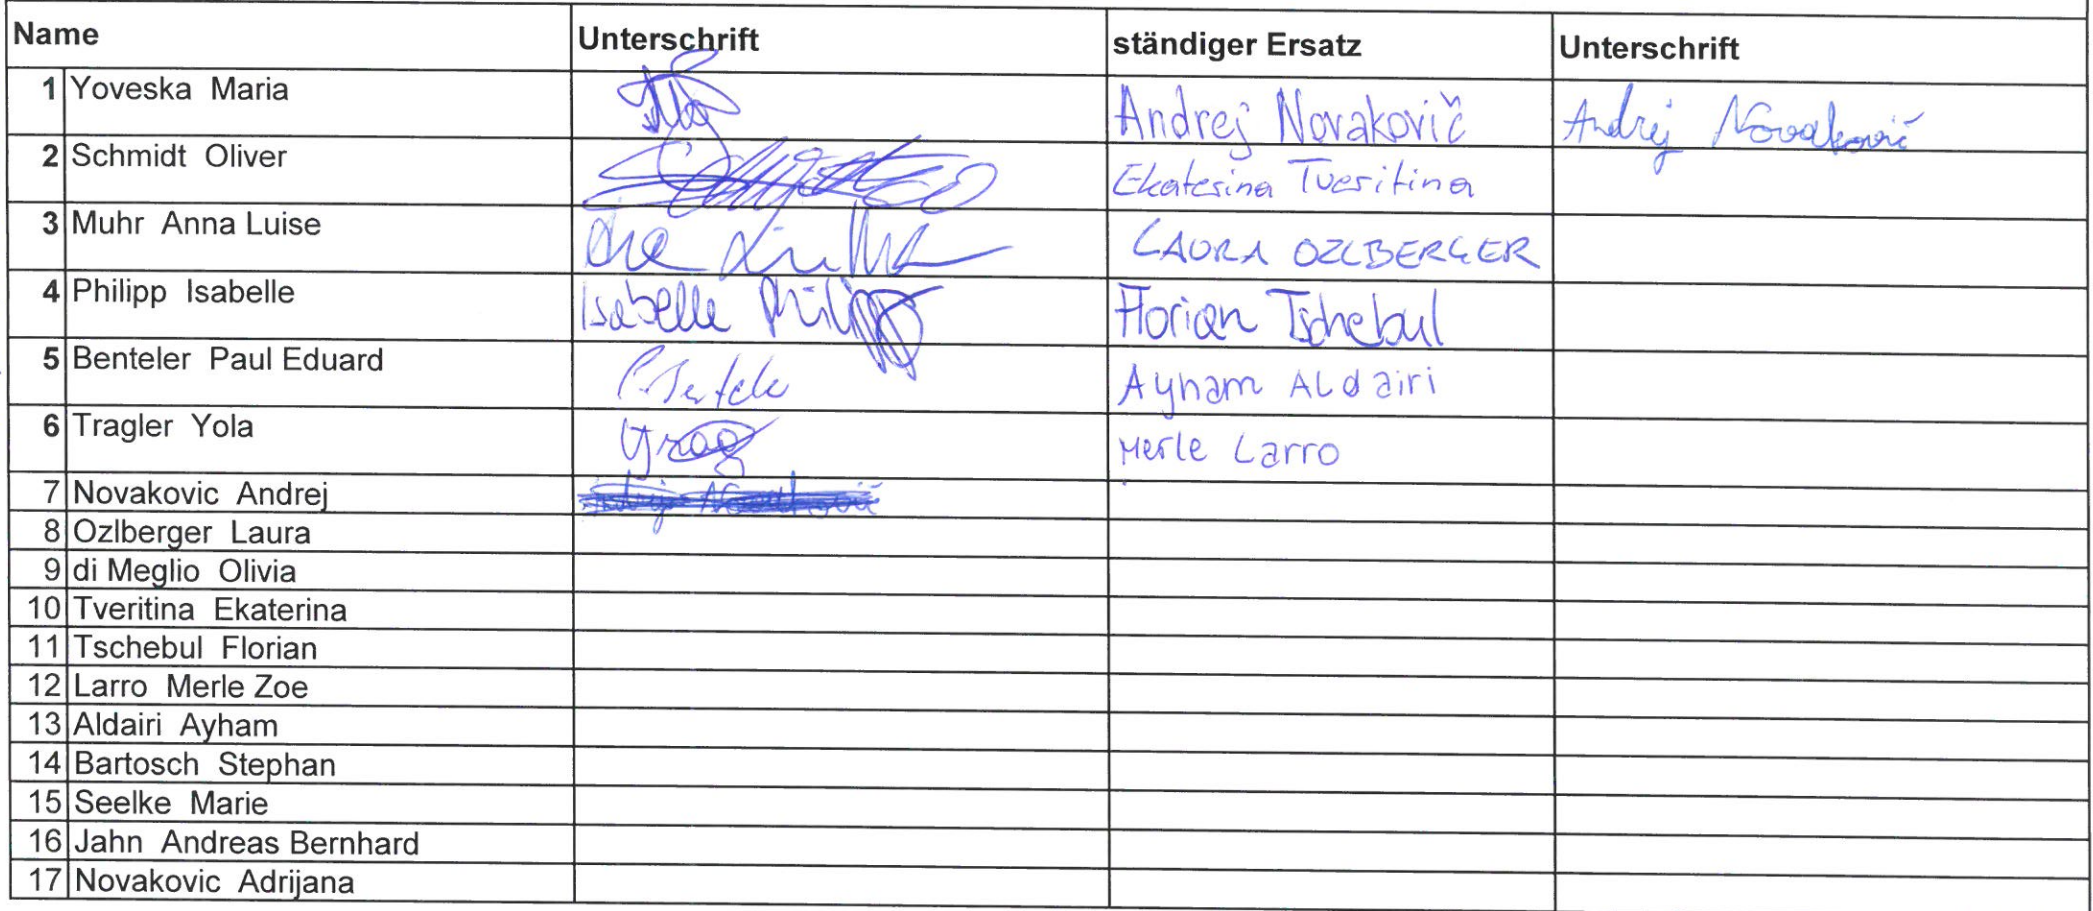 Name Unterschrift ständiger Ersatz Unterschrift
1 Yoveska Maria Andrej Novakovič Andrej Novakovič
2 Schmidt Oliver Ekaterina Tveritina
3 Muhr Anna Luise LAURA OZLBERGER
4 Philipp Isabelle Isabelle Philipp Florian Tschebul
5 Benteler Paul Eduard Ayham Aldairi
6 Tragler Yola Merle Larro
7 Novakovic Andrej
8 Ozlberger Laura
9 di Meglio Olivia
10 Tveritina Ekaterina
11 Tschebul Florian
12 Larro Merle Zoe
13 Aldairi Ayham
14 Bartosch Stephan
15 Seelke Marie
16 Jahn Andreas Bernhard
17 Novakovic Adrijana